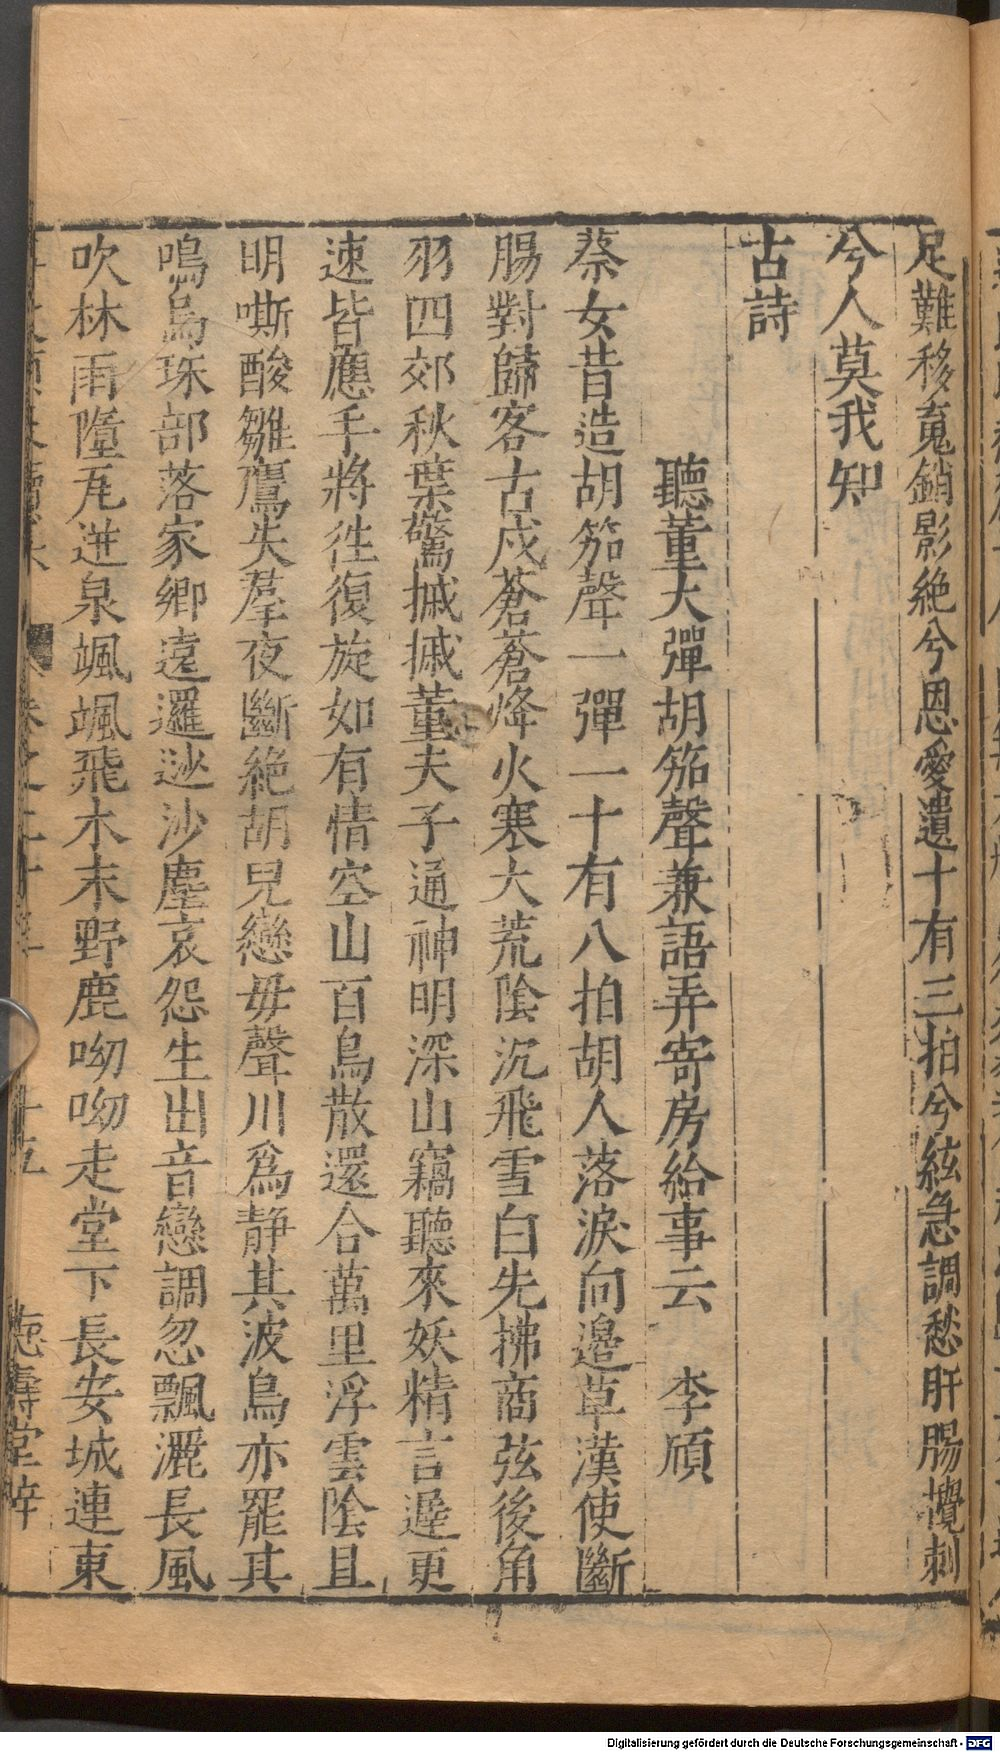 足難移䰟銷影絶兮恩愛遺十有三拍兮絃急調愁肝腸攪刺
兮人莫我知
古詩
聽董大彈胡笳聲兼語弄寄房給事云 李頎
蔡女昔造胡笳聲一彈一十有八拍胡人落淚向邉草漢使斷
腸對歸客古戍蒼蒼烽火寒大荒陰沉飛雪白先拂商弦後角
羽四郊秋葉驚摵摵董夫子通神明深山竊聽來妖精言遲更
速皆應手將徃復旋如有情空山百鳥散還合萬里浮雲陰且
明嘶酸雛鴈失羣夜斷絶胡兒戀毋聲川爲靜其波鳥亦罷其
鳴烏珠部落家鄉遠邏迯沙塵哀怨生出音戀調忽飄灑長風
吹林雨墮瓦迸泉颯颯飛木末野鹿呦呦走堂下長安城連東
卷之二十三 十五 德壽堂梓
Digitalisierung gefördert durch die Deutsche Forschungsgemeinschaft - DFG